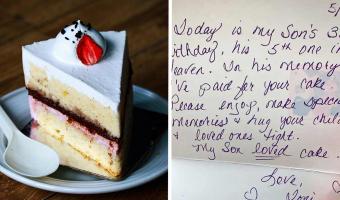 5/
Today is my Son's 3
irthday, his 5th one in
eaven. In his memory
I've paid for your cake
Please enjoy, make special
memories & hug your chil
& loved ones tight.
My Son loved cake.
Love,